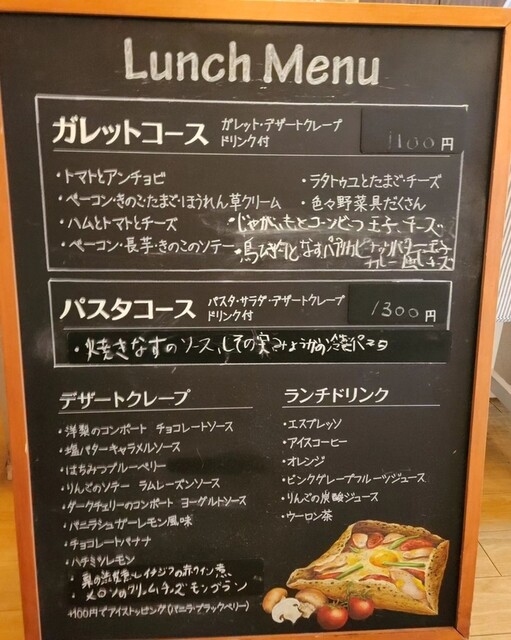 Lunch Menu
ガレットコース ガレット・デザートクレープ ドリンク付 1100円
・トマトとアンチョビ
・ベーコン・きのこ・たまご・ほうれん草クリーム
・ハムとトマトとチーズ
・ベーコン・長芋・きのこのソテー
・ラタトゥユとたまご・チーズ
・色々野菜具だくさん
・じゃがいもとコーンとうふ玉子、チーズ
・鳥ひき肉となす
カレー 玉子 チーズ
パスタコース パスタ・サラダ・デザートクレープ ドリンク付 1300円
・焼きなすのソース、しその実みょうがの冷製パスタ
デザートクレープ
・洋梨のコンポート チョコレートソース
・塩バターキャラメルソース
・はちみつブルーベリー
・りんごのソテー ラムレーズンソース
・ダークチェリーのコンポート ヨーグルトソース
・バニラシュガーレモン風味
・チョコレートバナナ
・ハチミツレモン
イチジクの赤ワイン煮
・メロンのクリームチーズモンブラン
+100円でアイストッピング(バニラ・ブラックベリー)
ランチドリンク
・エスプレッソ
・アイスコーヒー
・オレンジ
・ピンクグレープフルーツジュース
・りんごの炭酸ジュース
・ウーロン茶